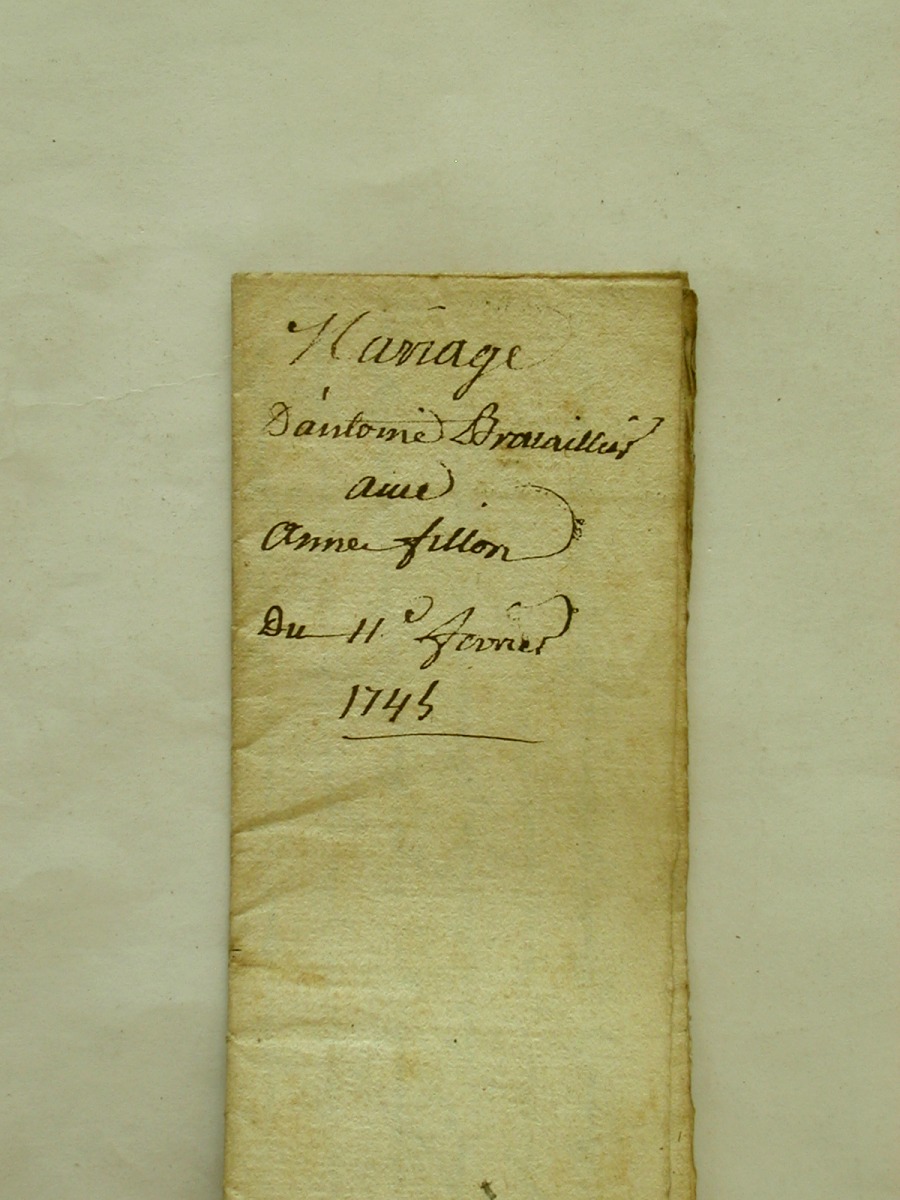 Mariage
D'antoine Brouaillier
auec
anne fillon
Du 11e fevrier
1745